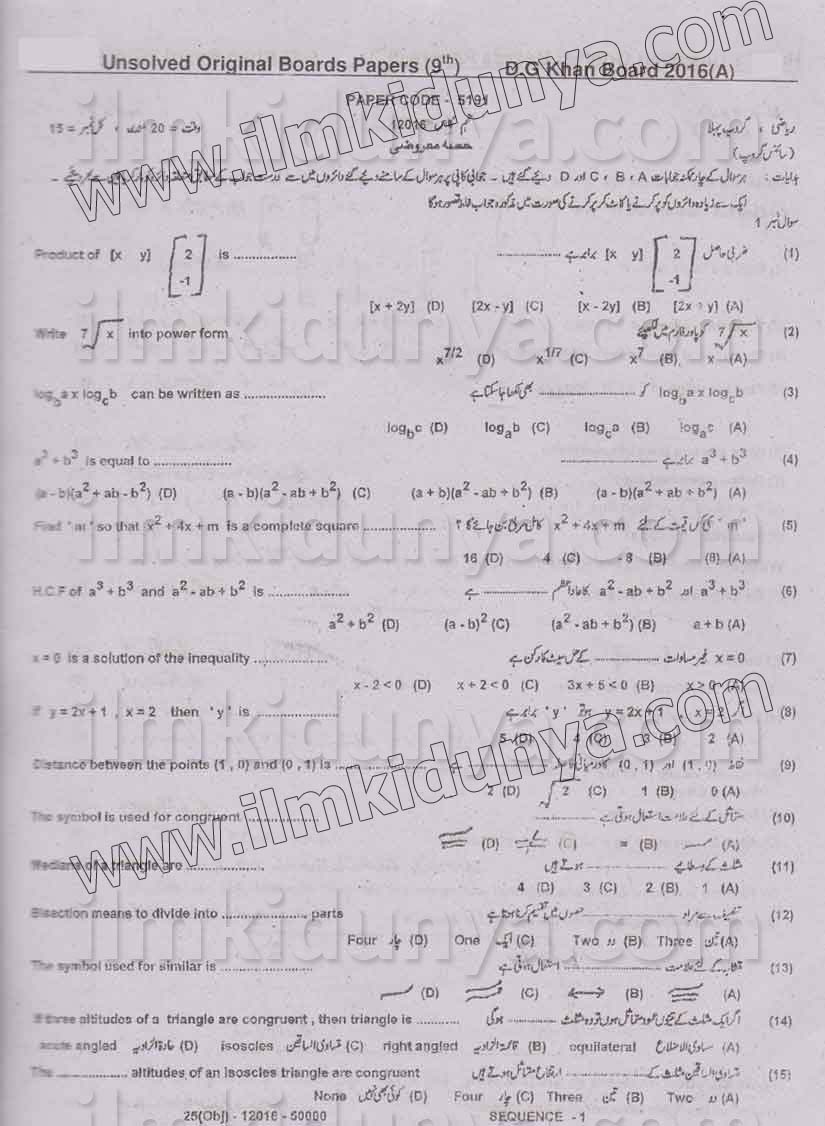 Unsolved Original Boards Papers (9th) D.G Khan Board 2016(A)
PAPER CODE - 5191
ریاضی ، گروپ پہلا 12016 وقت = 20 منٹ ، کل نمبر = 15
(سائنس گروپ) حصہ معروضی
ہدایات : ہر سوال کے چار ممکنہ جوابات A ، B ، C اور D دیئے گئے ہیں ۔ جوابی کاپی پر ہر سوال کے سامنے دیئے گئے دائروں میں سے درست جواب کے مطابق متعلقہ دائرہ کو
ایک سے زیادہ دائروں کو پُر کرنے یا کاٹ کر پُر کرنے کی صورت میں مذکورہ جواب غلط تصور ہوگا
سوال نمبر 1
Product of [x y] [2 -1] is ................ ضربی حاصل [x y] [2 -1] برابر ہے ................ (1)
[x + 2y] (D) [2x - y] (C) [x - 2y] (B) [2x + y] (A)
Write 7√x into power form 7√x کو پاور فارم میں لکھیئے (2)
x^7/2 (D) x^1/7 (C) x^7 (B) x (A)
log_b a x log_c b can be written as ..................... log_b a x log_c b کو ..................... بھی لکھا جا سکتا ہے (3)
log_b c (D) log_a b (C) log_c a (B) log_a c (A)
a³ + b³ is equal to .................... a³ + b³ برابر ہے .................... (4)
(a - b)(a² + ab - b²) (D) (a - b)(a² - ab + b²) (C) (a + b)(a² - ab + b²) (B) (a - b)(a² + ab + b²) (A)
Find 'm' so that x² + 4x + m is a complete square ................... 'm' کی کس قیمت کے لئے x² + 4x + m کامل مربع بن جائے گا ؟ (5)
16 (D) 4 (C) - 8 (B) (8) (A)
H.C.F of a³ + b³ and a² - ab + b² is ..................... a³ + b³ اور a² - ab + b² کا عاد اعظم ............ ہے (6)
a² + b² (D) (a - b)² (C) (a² - ab + b²) (B) a + b (A)
x = 0 is a solution of the inequality ................... x = 0 غیر مساوات ................ کے حل سیٹ کا رکن ہے (7)
x - 2 < 0 (D) x + 2 < 0 (C) 3x + 5 < 0 (B) x > 0 (A)
If y = 2x + 1 , x = 2 then 'y' is ..................... اگر x = 2 ، y = 2x + 1 ہو تو 'y' برابر ہے (8)
5 (D) 4 (C) 3 (B) 2 (A)
Distance between the points (1 , 0) and (0 , 1) is ...................... نقاط (1 , 0) اور (0 , 1) کا درمیانی فاصلہ ............ ہے (9)
2 (D) √2 (C) 1 (B) 0 (A)
The symbol is used for congruent .................. متماثل کے لئے علامت استعمال ہوتی ہے .................. (10)
≅ (D) (C) = (B) (A)
Medians of a triangle are .................... مثلث کے وسطانیے .................... ہوتے ہیں (11)
4 (D) 3 (C) 2 (B) 1 (A)
Bisection means to divide into ...................... parts تنصیف سے مراد ...................... حصوں میں تقسیم کرنا ہوتا ہے (12)
Four چار (D) One ایک (C) Two دو (B) Three تین (A)
The symbol used for similar is ........................ متشابہ کے لئے علامت ........................ استعمال ہوتی ہے (13)
∼ (D) (C) ↔ (B) ≅ (A)
If three altitudes of a triangle are congruent , then triangle is ........... اگر ایک مثلث کے تینوں عمود متماثل ہوں تو وہ مثلث ........... ہوگی (14)
acute angled حادۃ الزاویہ (D) isoscles متساوی الساقین (C) right angled قائمۃ الزاویہ (B) equilateral مساوی الاضلاع (A)
The .................. altitudes of an isoscles triangle are congruent متساوی الساقین مثلث کے .................. ارتفاع متماثل ہوتے ہیں (15)
None کوئی بھی نہیں (D) Four چار (C) Three تین (B) Two دو (A)
25(Obj) - 12016 - 50000 SEQUENCE - 1
www.ilmkidunya.com
www.ilmkidunya.com
ilmkidunya.com
ilmkidunya.com
ilmkidunya.com
ilmkidunya.com
ilmkidunya.com
ilmkidunya.com